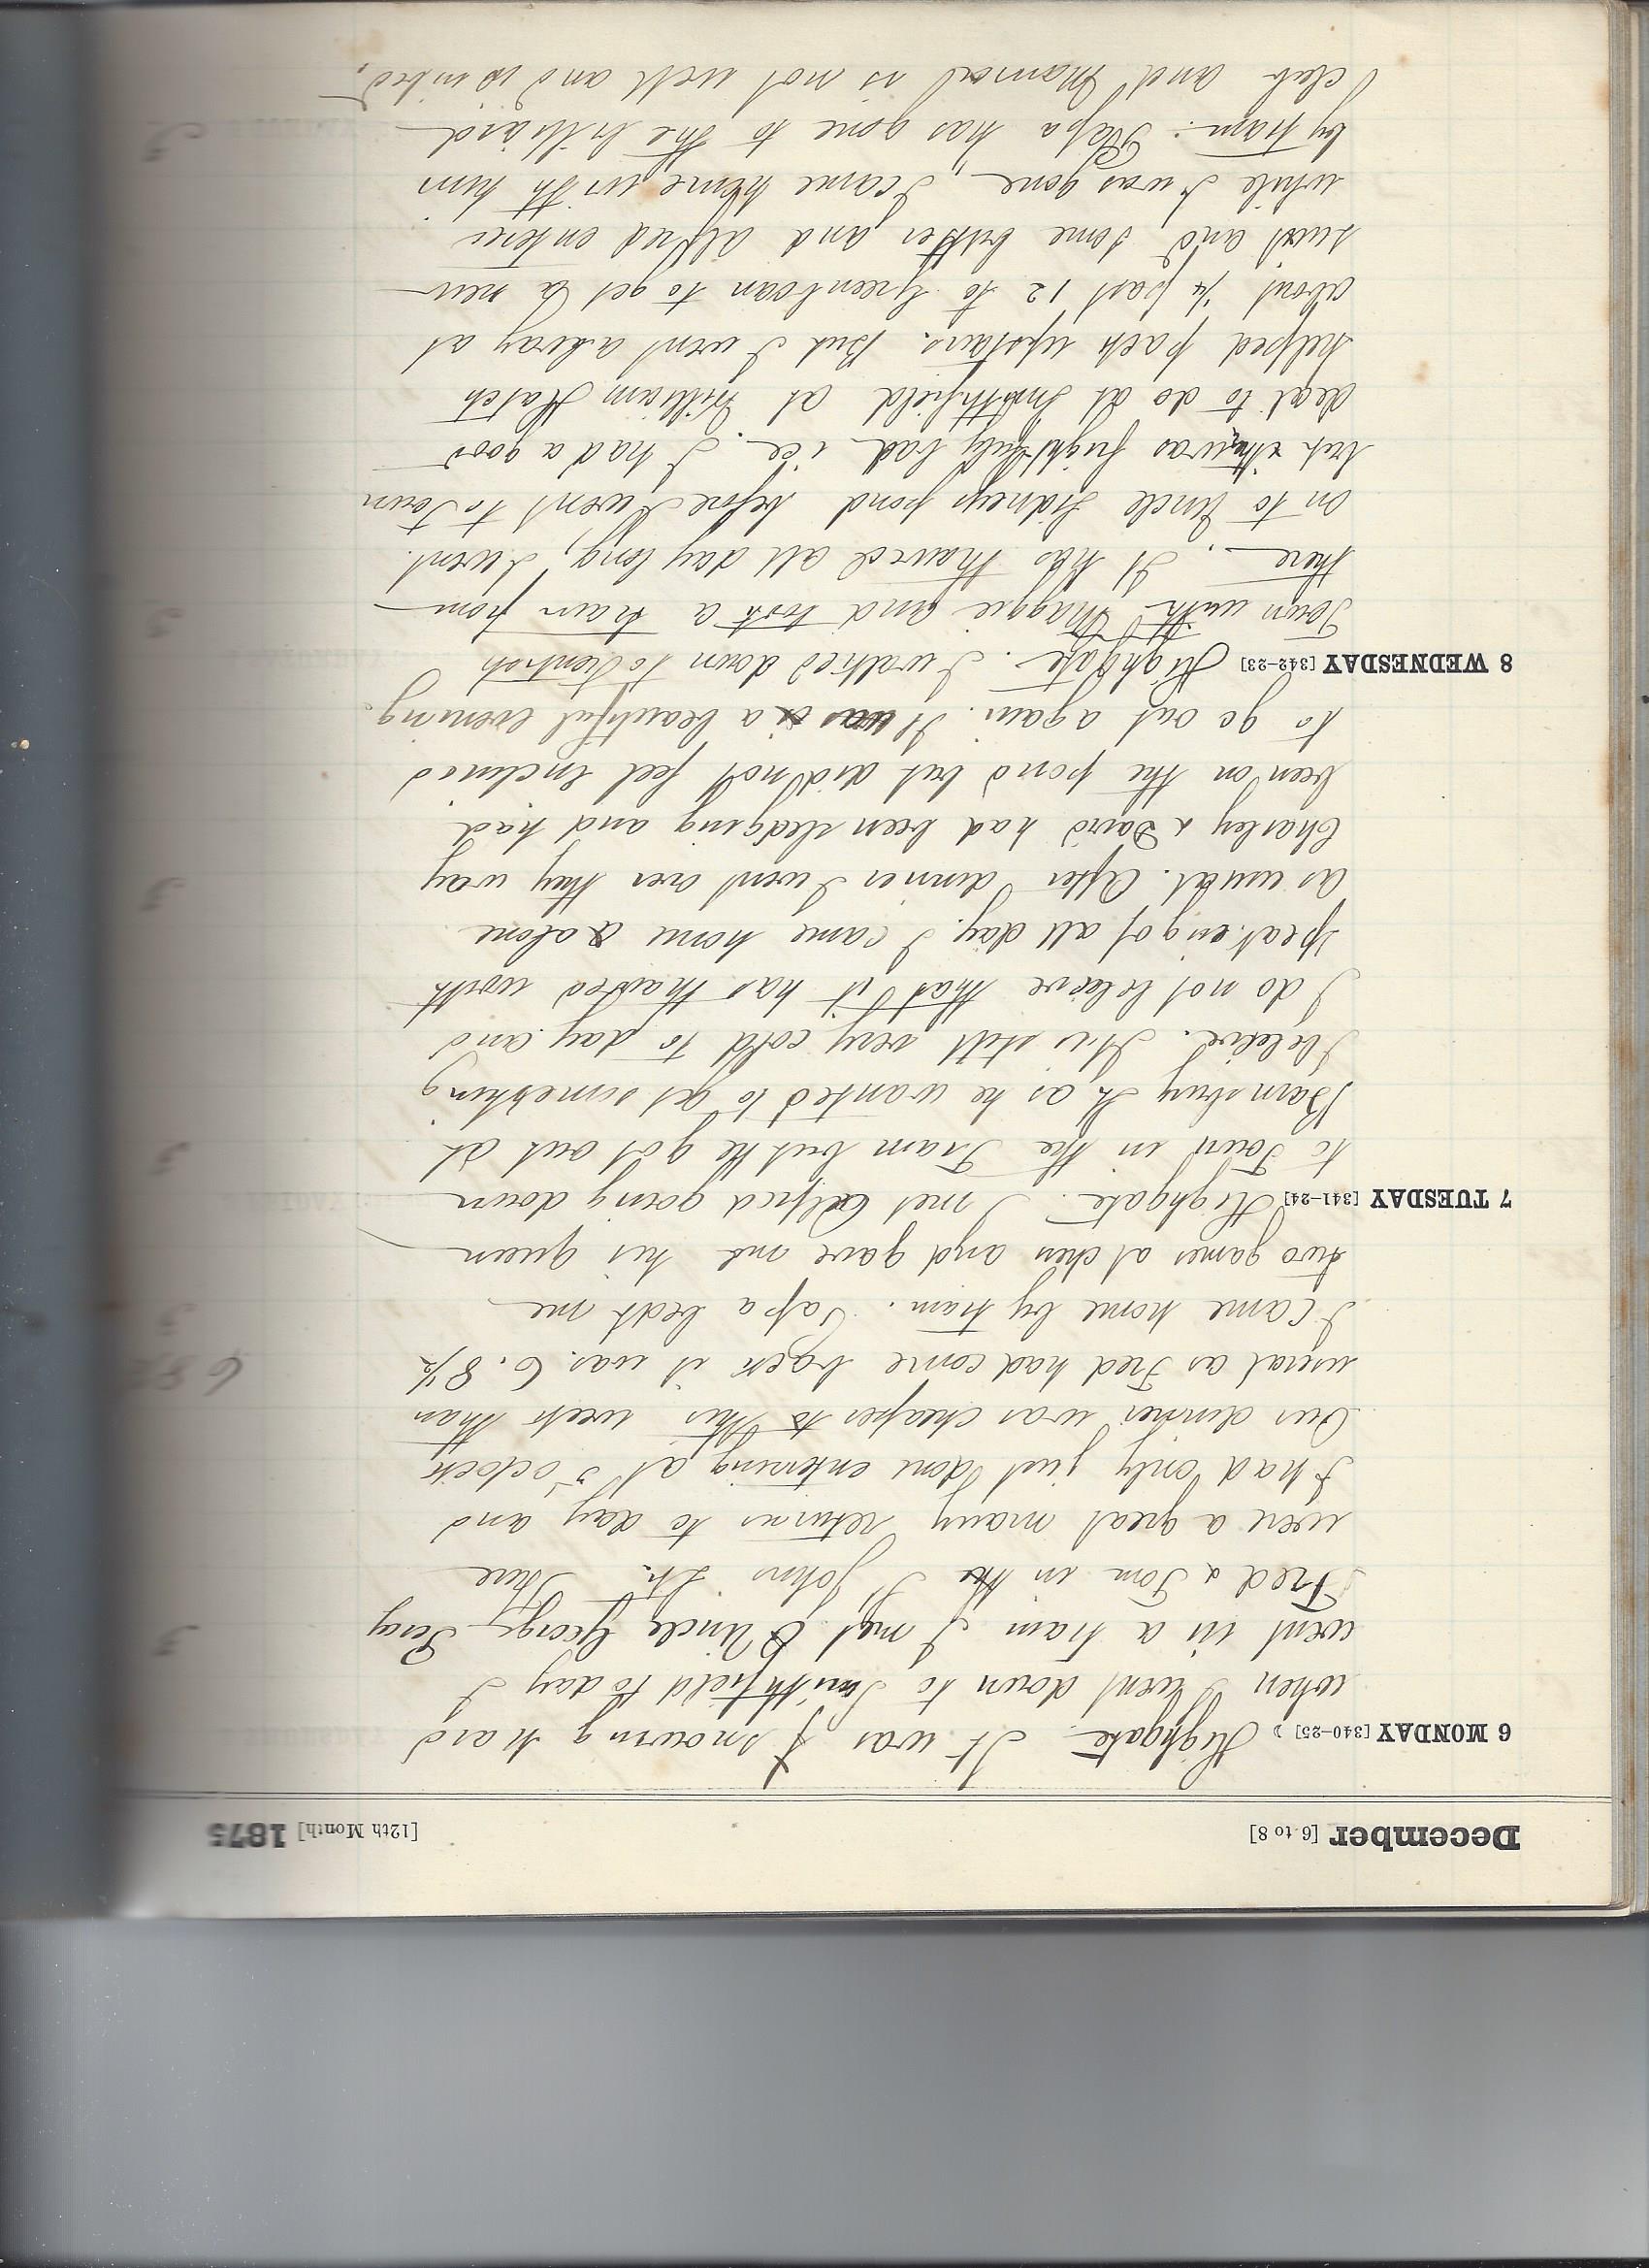 December [6 to 8] [12th Month] 1875
6 MONDAY [340-25] Highgate. It was snowing hard
when I went down to Smithfield to day I
went in a tram I met Uncle George, Percy
Fred & Tom in the St Johns St. There
were a great many returns to day and
I had only just done entering at 5 oclock
Our dinner was cheaper to this week than
usual as Fred had come back it was. 6. 8½
I came home by tram. Papa beat me
two games at chess and gave me his queen
7 TUESDAY [341-24] Highgate. I met Alfred going down
to Town in the Tram but he got out at
Barnsbury St as he wanted to get something
I beleive. It is still very cold to day and
I do not beleive that it has thawed worth
speaking of all day. I came home alone
as usual. After dinner I went over they way
Charley & David had been sledging and had
been on the pond but did not feel inclined
to go out again. It was a beautiful evening.
8 WEDNESDAY [342-23] Highgate. I walked down to Kentish
Town with Maggie and took a tram from
there. It has thawed all day long, I went
on to Uncle Sidneys pond before I went to Town
but it was frightfully bad ice. I had a good
deal to do at Smithfield at William Hatch
helped pack upstairs. But I went away at
about ¼ past 12 to Greenloan to get a new
suit and some butter and Alfred entered
while I was gone, I came home with him
by tram. Papa has gone to the billiard
club and Mama is not well and is in bed.